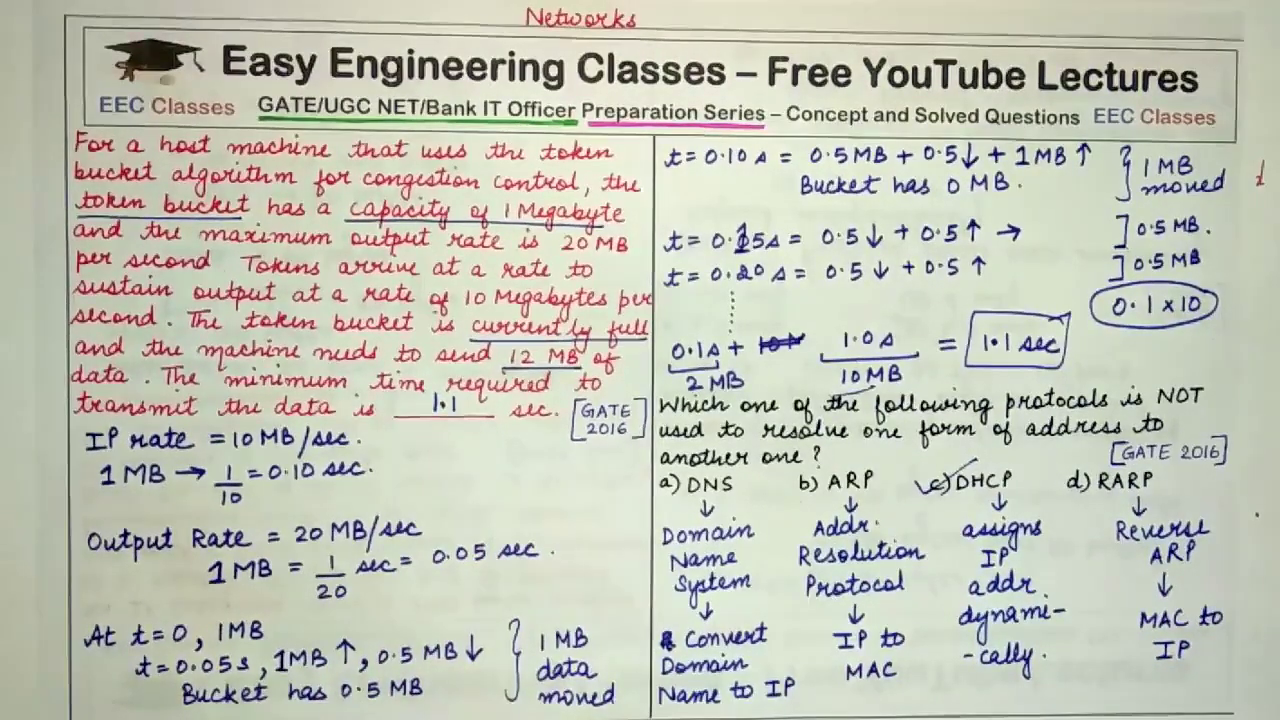 Networks
Easy Engineering Classes – Free YouTube Lectures
EEC Classes GATE/UGC NET/Bank IT Officer Preparation Series – Concept and Solved Questions EEC Classes
For a host machine that uses the token
bucket algorithm for congestion control, the
token bucket has a capacity of 1 Megabyte
and the maximum output rate is 20 MB
per second Tokens arrive at a rate to
sustain output at a rate of 10 Megabytes per
second. The token bucket is currently full
and the machine needs to send 12 MB of
data. The minimum time required to
transmit the data is 1.1 sec. [GATE 2016]
IP rate = 10 MB/sec.
1 MB → 1/10 = 0.10 sec.
Output Rate = 20 MB/sec
1 MB = 1/20 sec = 0.05 sec.
At t=0, 1MB
t=0.05s, 1MB ↑, 0.5 MB ↓
Bucket has 0.5 MB
} 1 MB
data
moved
t=0.10s = 0.5MB + 0.5↓ + 1MB ↑
Bucket has 0 MB.
} 1 MB
moved
t=0.15s = 0.5↓ + 0.5↑ → ] 0.5 MB.
t=0.20s = 0.5↓ + 0.5↑ ] 0.5 MB
0.1 x 10
0.1s + 1.0s = 1.1 sec
2 MB 10 MB
Which one of the following protocols is NOT
used to resolve one form of address to
another one? [GATE 2016]
a) DNS b) ARP ✓c) DHCP d) RARP
↓ ↓ ↓ ↓
Domain Addr. assigns Reverse
Name Resolution IP ARP
System Protocol addr. ↓
↓ ↓ dynami- MAC to
Convert IP to -cally. IP
Domain MAC
Name to IP